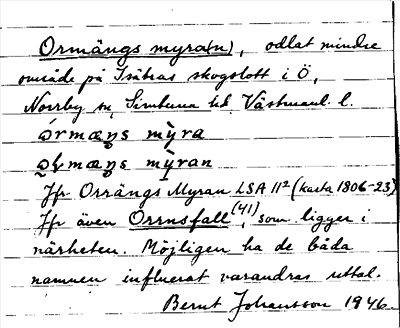 Ormängs myra(n), odlat mindre
område på Isätras skogslott i Ö,
Norrby sn, Simtuna hd, Västmanl. l.
órmæŋs mỳra
mæŋs mỳran
Jfr Orrängs Myran LSA 11² (karta 1806-23)
Jfr även Orrnsfall (41), som ligger i
närheten. Möjligen ha de båda
namnen influerat varandras uttal.
Bernt Johansson 1946.